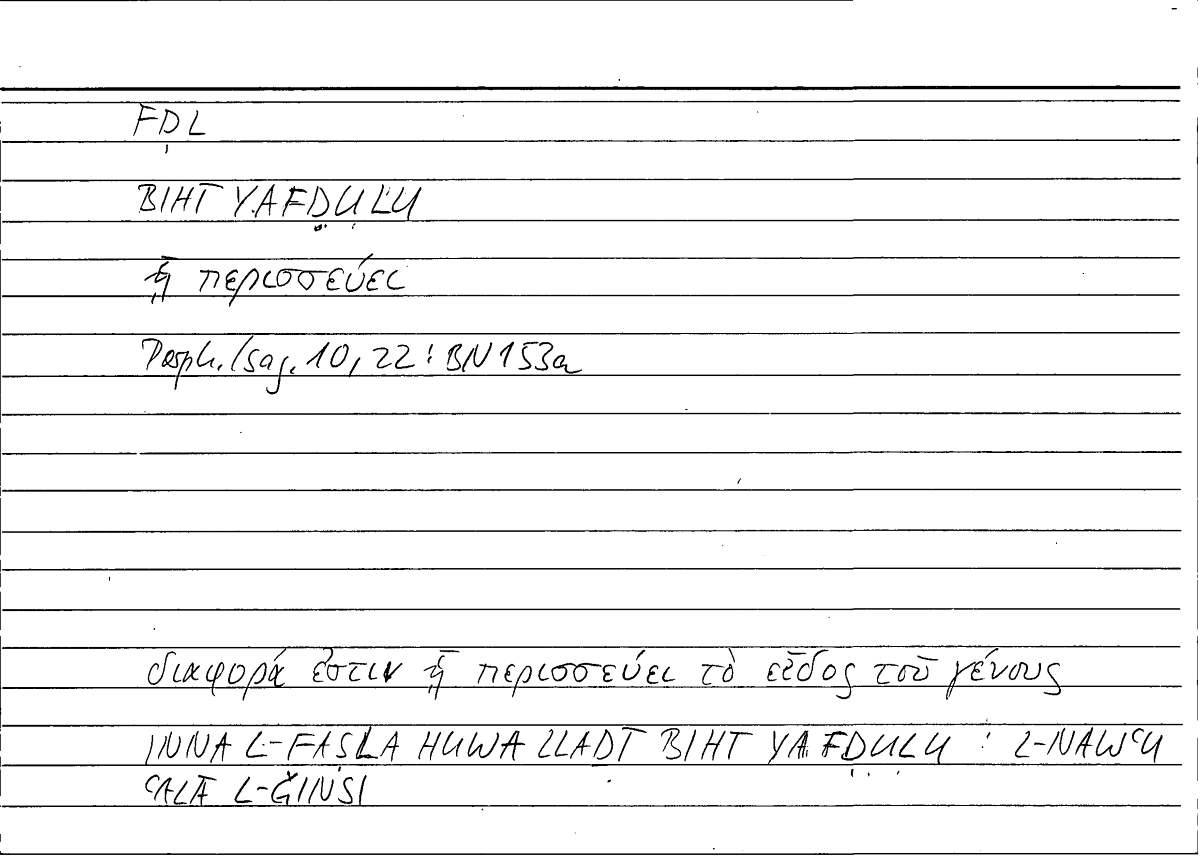 FḌL
BIHĪ YAFḌULU
ᾗ περισσεύει
Porph. Isag. 10, 22 : BN 153a
διαφορά ἐστιν ᾗ περισσεύει τὸ εἶδος τοῦ γένους
INNA L-FAṢLA HUWA LLAḎĪ BIHĪ YAFḌULU : L-NAWʿU
ʿALĀ L-ǦINSI